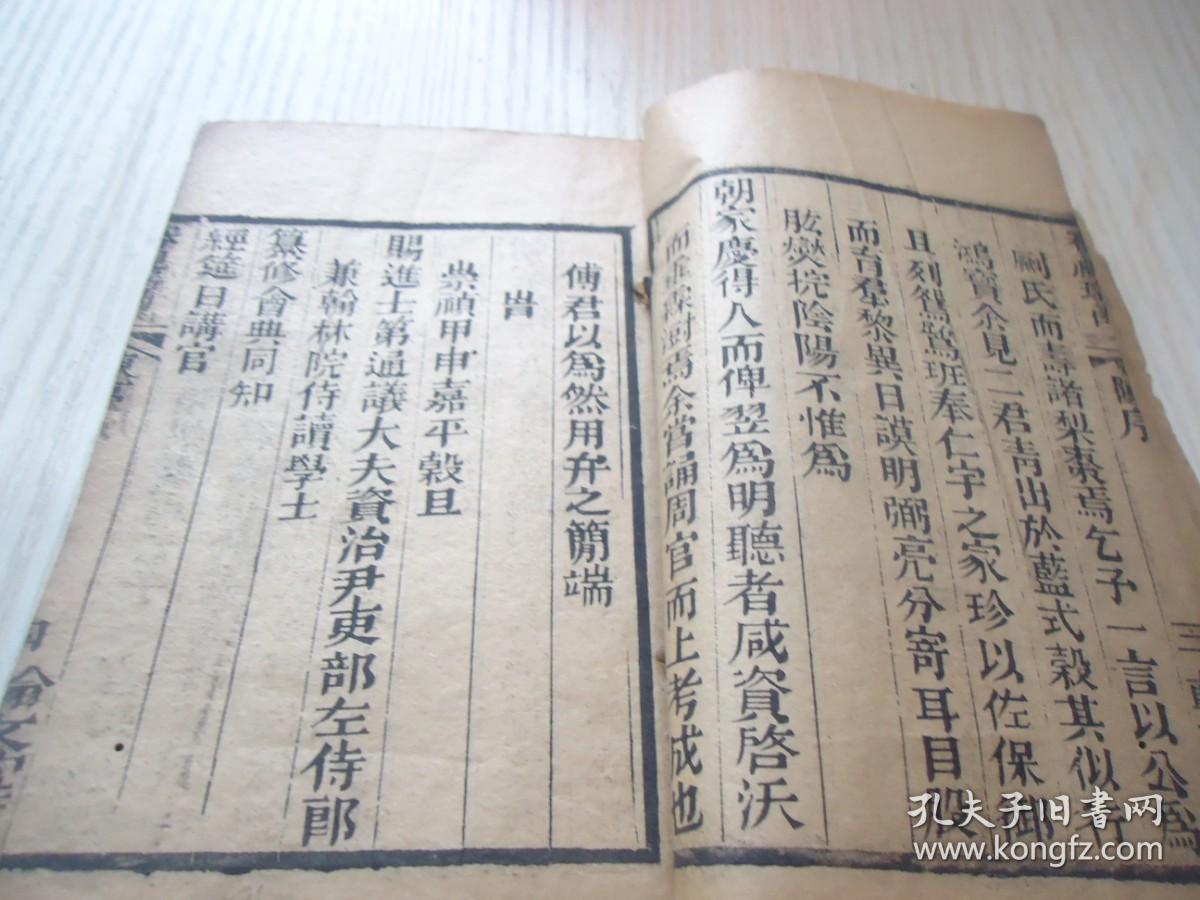 序
劂氏而壽諸梨棗焉乞予一言以公爲
鴻寶余見二君青出於藍式穀其似行
且列鴛鷺班奉仁宇之家珍以佐保御
而吾羣黎異日謨明弼亮分寄耳目股
肱燮 陰陽不惟爲
朝家慶得人而俾翌爲明聽者咸資啓沃
而 霖澍焉余嘗誦周官而上考成也
傅君以爲然用弁之簡端
旹
崇禎甲申嘉平穀旦
賜進士第通議大夫資治尹吏部左侍郎
兼翰林院侍讀學士
纂修會典同知
經筵日講官
孔夫子旧书网
www.kongfz.com